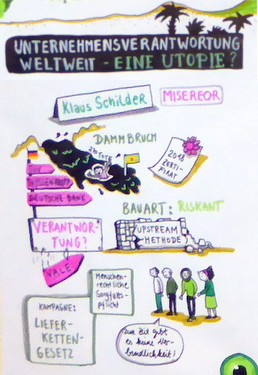 UNTERNEHMENSVERANTWORTUNG
WELTWEIT - EINE UTOPIE?
Klaus Schilder
MISEREOR
DAMMBRUCH
2018
ZERTI-
FIKAT
DEUTSCHE BANK
BAUART: RISKANT
VERANTWOR-
TUNG?
UPSTREAM
METHODE
VALE
Menschen-
rechtliche
Sorgfalts-
pflicht
KAMPAGNE:
LIEFER-
KETTEN-
GESETZ
Zur Zeit gibt
es keine Ver-
bindlichkeit!